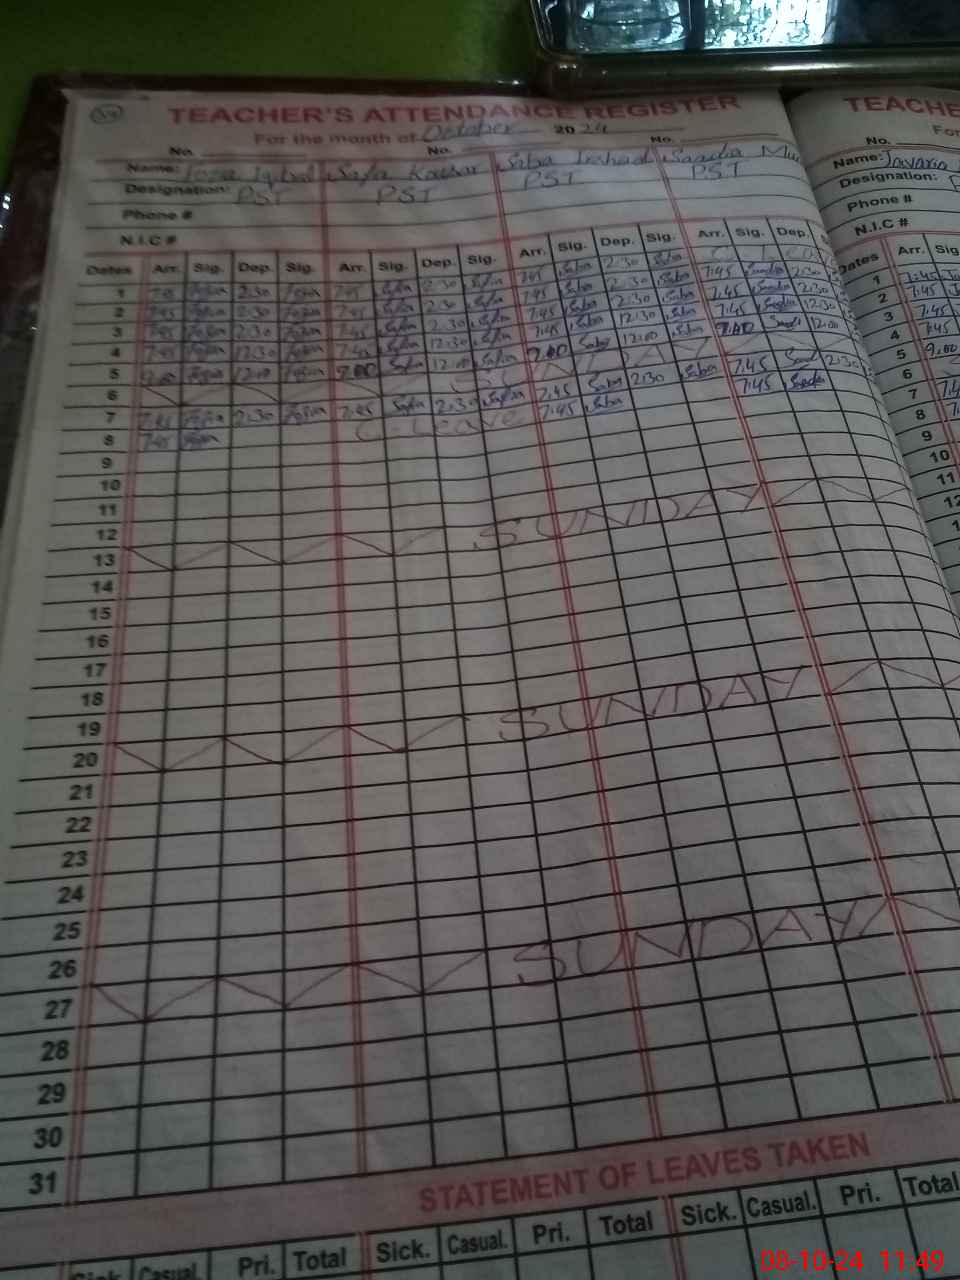 34
TEACHER'S ATTENDANCE REGISTER
For the month of October 2024
No. No. No.
Name: Iqbal Safa Kausar Saba Irshad Saadia
Designation: PST PST PST PST
Phone #
N.I.C #
Dates Arr. Sig. Dep. Sig. Arr. Sig. Dep. Sig. Arr. Sig. Dep. Sig. Arr. Sig. Dep.
1 7:45 2:30 7:45 Safa 2:30 Safa 7:45 Saba 2:30 Saba C. Lea
2 7:45 2:30 7:45 Safa 2:30 Safa 7:45 Saba 2:30 Saba 7:45 Saadia 2:30
3 7:45 2:30 7:45 Safa 2:30 Safa 7:45 Saba 2:30 Saba 7:45 Saadia 2:30
4 7:45 12:30 7:45 Safa 12:30 Safa 7:45 Saba 12:30 Saba 7:45 Saadia 12:30
5 9:00 12:00 9:00 Safa 12:00 Safa 9:00 Saba 12:00 Saba 9:00 12:00
6 SUNDAY
7 7:45 2:30 7:45 Safa 2:30 Safa 7:45 Saba 2:30 Saba 7:45 2:30
8 7:45 C-Leave 7:45 Saba 7:45 Saadia
9
10
11
12
13 SUNDAY
14
15
16
17
18
19
20 SUNDAY
21
22
23
24
25
26
27 SUNDAY
28
29
30
31
STATEMENT OF LEAVES TAKEN
Sick. Casual. Pri. Total Sick. Casual. Pri. Total Sick. Casual. Pri. Total
TEACHE
For
No.
Name: Javaria
Designation:
Phone #
N.I.C #
Dates Arr. Sig
1 7:45
2 7:45
3 7:45
4 7:45
5 9:00
6
7
8
9
10
11
12
08-10-24 11:49